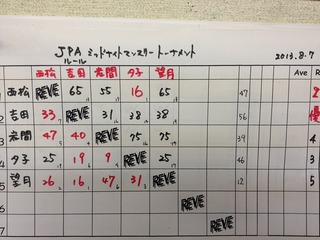 JPA ミッドナイトマンスリートーナメント 2013.8.7
ルール
西松 吉田 岩間 夕子 望月 Ave
1 西松 REVE 65 55 16 65 47 2
2 吉田 33 REVE 31 38 38 56 優
3 岩間 47 40 REVE 75 75 39 4
4 夕子 25 19 9 REVE 25 46 3
5 望月 26 16 47 31 REVE 12 5
6 REVE
7 REVE